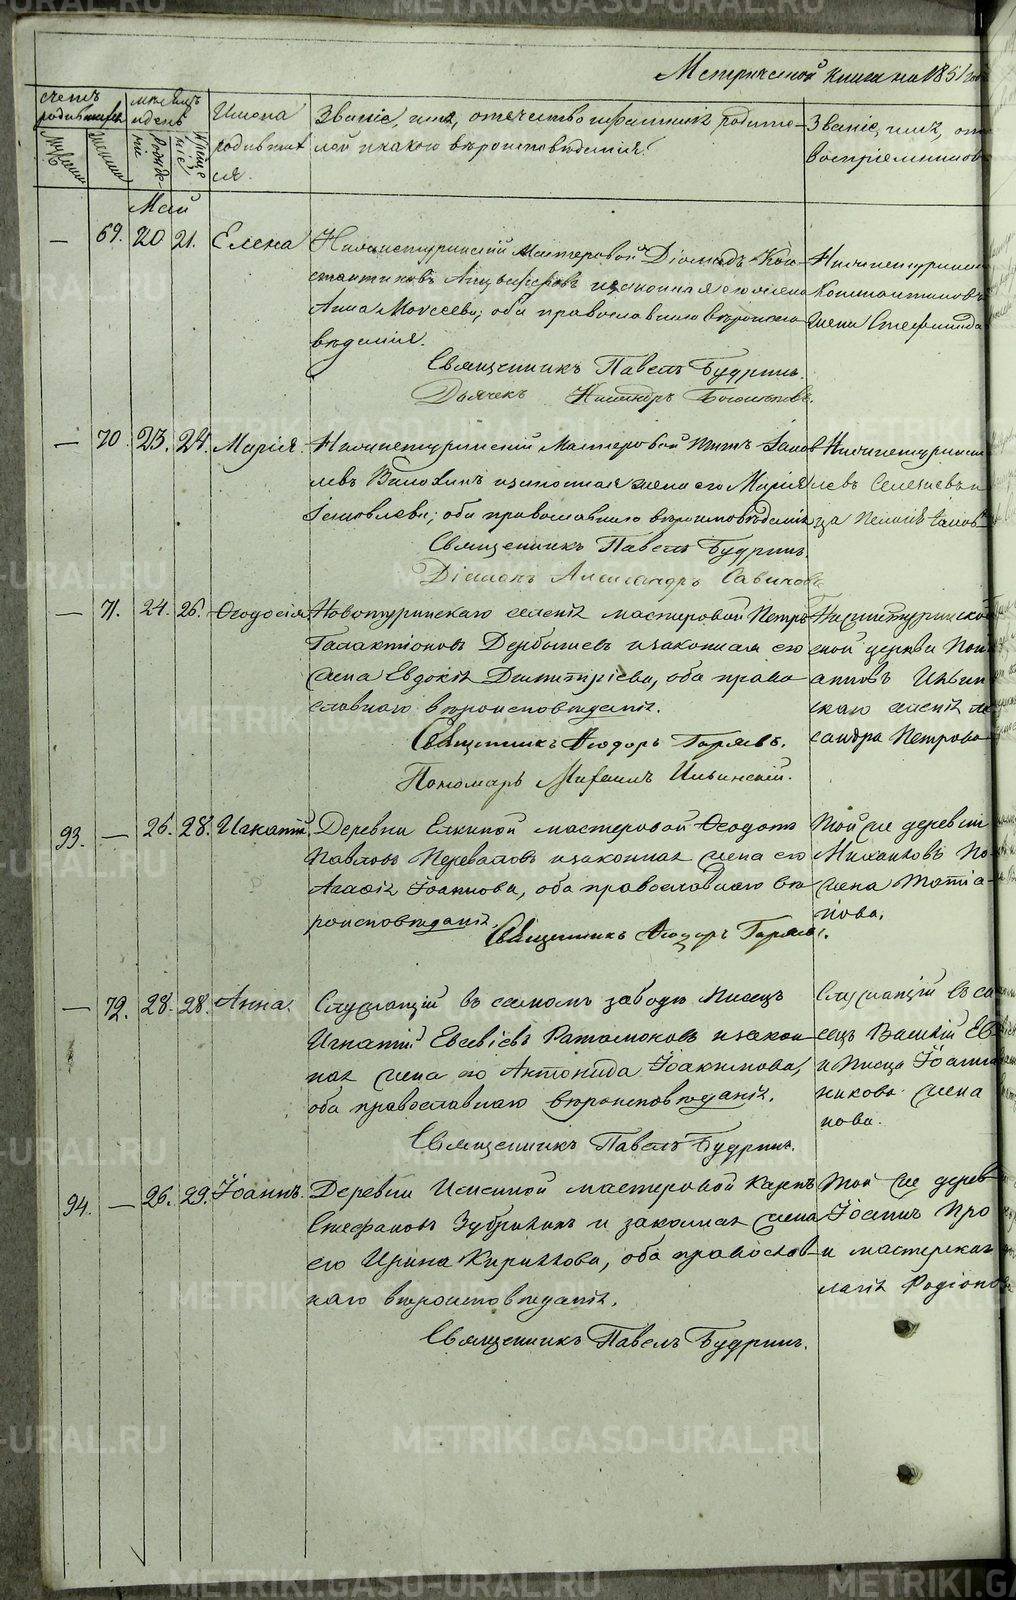 METRIKI.GASO-URAL.RU
Метрической книги на 1851 года
счетъ родившихся
мужеска
женска
месяцъ и день
рожденія
крещенія
Имена родившихся.
Званіе, имя, отчество и фамилія родителей и какого вѣроисповѣданія.
Званіе, имя, от
воспріемников
Май
— 69. 20 21. Елена
Нижнетуринскій Мастеровой Діомидъ Кон-
стантиновъ Анцыферовъ и законная его жена
Анна Моисеева; оба православнаго вѣроиспо-
вѣданія.
Священникъ Павелъ Будринъ.
Дьячекъ
Нижнетурински
Константиновъ
жена Стефанида
— 70. 23. 24. Марія.
Нижнетуринскій Мастеровой Титъ Іаков
левъ и законная жена его Марія
Іаковлева; оба православнаго вѣроисповѣданія
Священникъ Павелъ Будринъ.
Діаконъ Александръ
Нижнетуринскі
левъ
— 71. 24. 26. Ѳеодосія
Новотуринскаго селенія мастеровой Петръ
Галактіоновъ и законная его
жена Евдокія Димитріева, оба право
славнаго вѣроисповѣданія.
Священникъ Ѳеодоръ
Пономарь Михаилъ Ильинскій.
Нижнетуринской
ной церкви Пон
скаго селенія
сандра Петрова
93. — 26. 28. Игнатій.
Деревни Елкиной мастеровой Ѳеодотъ
Павловъ Переваловъ и законная жена его
Агафія Іоаннова, оба православнаго вѣ
роисповѣданія.
Священникъ Ѳеодоръ
Той же деревни
жена
нова.
— 72. 28. 28. Анна.
Служащій въ самомъ заводѣ Писецъ
Игнатій Евсевіевъ и закон-
ная жена его Антонида Іоакимова,
оба православнаго вѣроисповѣданія.
Священникъ Павелъ Будринъ.
Служащій въ са
сецъ Василій Ев
и Писца Іоанна
никова жена
нова.
94. — 26. 29. Іоаннъ.
Деревни мастеровой Карпъ
Стефановъ Зубрихинъ и законная жена
его Ирина Кириллова, оба православ-
наго вѣроисповѣданія.
Священникъ Павелъ Будринъ.
Той же дерев
Іоаннъ Про
и мастерская
лагія Родіонов